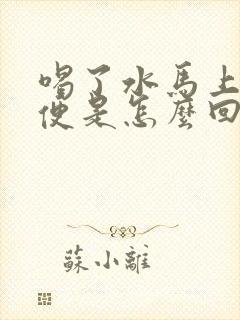 喝了水馬上
便是怎麼回
蘇小離